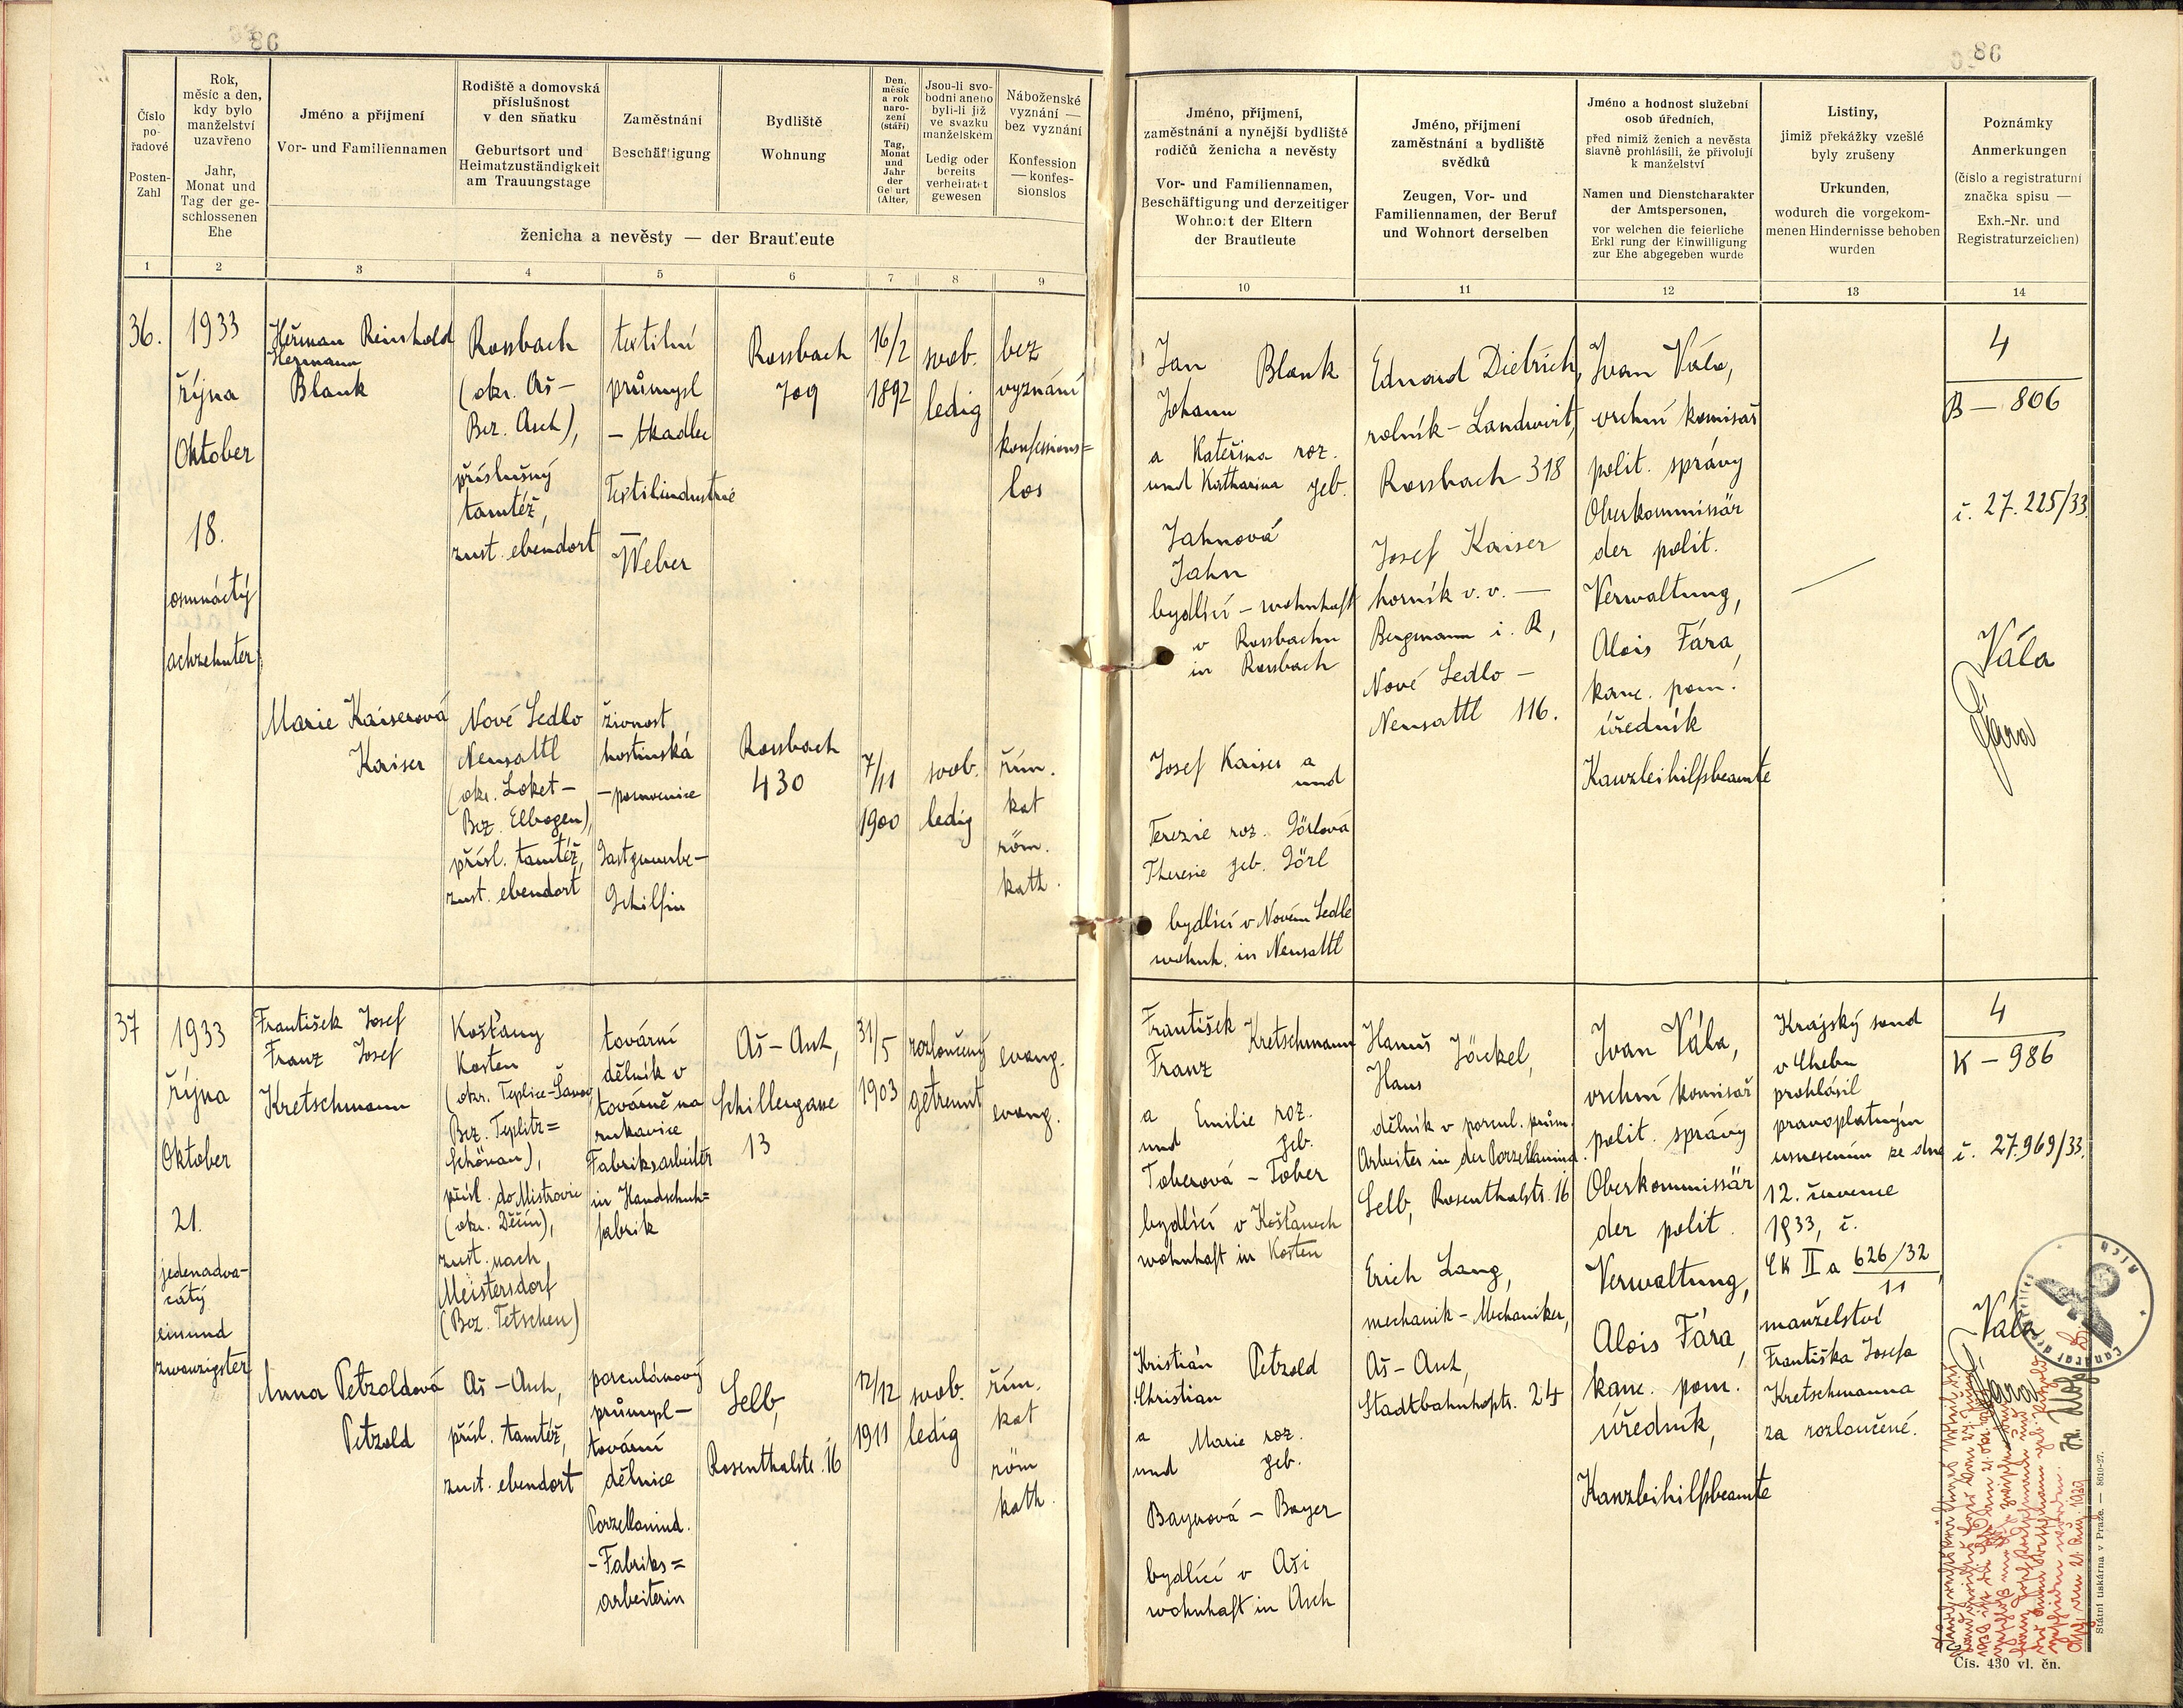 86
Číslo
po-
řadové
Posten-
Zahl
Rok,
měsíc a den,
kdy bylo
manželství
uzavřeno
Jahr,
Monat und
Tag der ge-
schlossenen
Ehe
Jméno a příjmení
Vor- und Familiennamen
Rodiště a domovská
příslušnost
v den sňatku
Geburtsort und
Heimatzuständigkeit
am Trauungstage
Zaměstnání
Beschäftigung
Bydliště
Wohnung
Den,
měsíc
a rok
naro-
zení
(stáří)
Tag,
Monat
und
Jahr
der
Geburt
(Alter)
Jsou-li svo-
bodni aneho
byli-li již
ve svazku
manželském
Ledig oder
bereits
verheiratet
gewesen
Náboženské
vyznání —
bez vyznání
Konfession
— konfes-
sionslos
ženicha a nevěsty — der Brautleute
1
2
3
4
5
6
7
8
9
36.
1933
října
Oktober
18.
osmnáctý
achzehnter
Heřman Reinhold
Hermann
Blank
Rossbach
(okr. Aš-
Bez. Asch),
příslušný
tamtéž,
zust. ebendort
textilní
průmysl
- tkadlec
Textilindustrie
- Weber
Rossbach
709
16/2
1892
svob.
ledig
bez
vyznání
konfessions=
los
Marie Kaiserová
Kaiser
Nové Sedlo
Neusattl
(okr. Loket-
Bez. Elbogen),
přísl. tamtéž,
zust. ebendort
živnost
hostinská
- pomocnice
Gastgewerbe-
Gehilfin
Rossbach
430
7/11
1900
svob.
ledig
řím.
kat
röm.
kath.
37
1933
října
Oktober
21.
jedenadva-
cátý
einund
zwanzigster
František Josef
Franz Josef
Kretschmann
Košťany
Kosten
(okr. Teplice-Šanov
Bez. Teplitz=
Schönau),
přísl. do Mistrovic
(okr. Děčín),
zust. nach
Meistersdorf
(Bez. Tetschen)
tovární
dělník v
továrně na
rukavice
Fabriksarbeiter
in Handschuh=
fabrik
Aš - Asch,
Schillergasse
13
31/5
1903
rozloučený
getrennt
evang.
evang.
Anna Petzoldová
Petzold
Aš - Asch,
přísl. tamtéž,
zust. ebendort
porculánový
průmysl -
tovární
dělnice
Porzellanind.
- Fabriks=
arbeiterin
Selb,
Rosenthalstr. 16
12/12
1911
svob.
ledig
řím.
kat
röm
kath.
86
Jméno, příjmení,
zaměstnání a nynější bydliště
rodičů ženicha a nevěsty
Vor- und Familiennamen,
Beschäftigung und derzeitiger
Wohnort der Eltern
der Brautleute
Jméno, příjmení
zaměstnání a bydliště
svědků
Zeugen, Vor- und
Familiennamen, der Beruf
und Wohnort derselben
Jméno a hodnost služební
osob úředních,
před nimiž ženich a nevěsta
slavně prohlásili, že přivolují
k manželství
Namen und Dienstcharakter
der Amtspersonen,
vor welchen die feierliche
Erklärung der Einwilligung
zur Ehe abgegeben wurde
Listiny,
jimiž překážky vzešlé
byly zrušeny
Urkunden,
wodurch die vorgekom-
menen Hindernisse behoben
wurden
Poznámky
Anmerkungen
(číslo a registraturní
značka spisu —
Exh.-Nr. und
Registraturzeichen)
10
11
12
13
14
Jan Blank
Johann
a Kateřina roz.
und Katharina geb.
Jahnová
Jahn
bydlící - wohnhaft
v Rossbachu
in Rossbach
Josef Kaiser a
und
Terezie roz. Görlová
Theresie geb. Görl
bydlící v Novém Sedle
wohnh. in Neusattl
Eduard Dietrich,
rolník - Landwirt,
Rossbach 318
Josef Kaiser
horník v. v. -
Bergmann i. R,
Nové Sedlo -
Neusattl 116.
Ivan Vála,
vrchní komisař
polit. správy
Oberkommissär
der polit.
Verwaltung,
Alois Fára,
kanc. pom.
úředník
Kanzleihilfsbeamte
4
B - 806
č. 27.225/33.
Vála
Fára
František Kretschmann
Franz
a Emilie roz.
und geb.
Toberová - Tober
bydlící v Košťanech
wohnhaft in Kosten
Kristián Petzold
Christian
a Marie roz.
und geb.
Bayerová - Bayer
bydlící v Aši
wohnhaft in Asch
Hanuš Jöckel,
Hans
dělník v porcul. prům.
Arbeiter in der Porzellanind.
Selb, Rosenthalstr. 16
Erich Lang,
mechanik - Mechaniker,
Aš - Asch,
Stadtbahnhofstr. 24
Ivan Vála,
vrchní komisař
polit. správy
Oberkommissär
der polit.
Verwaltung,
Alois Fára,
kanc. pom.
úředník,
Kanzleihilfsbeamte
Krajský soud
v Chebu
prohlásil
pravoplatným
usnesením ze dne
12. července
1933, č.
Ck II a 626/32
11
manželství
Františka Josefa
Kretschmanna
za rozloučené.
4
K - 986
č. 27.969/33.
Vála
Fára
Státní tiskárna v Praze. — 8610-27.
Čís. 430 vl. čn.